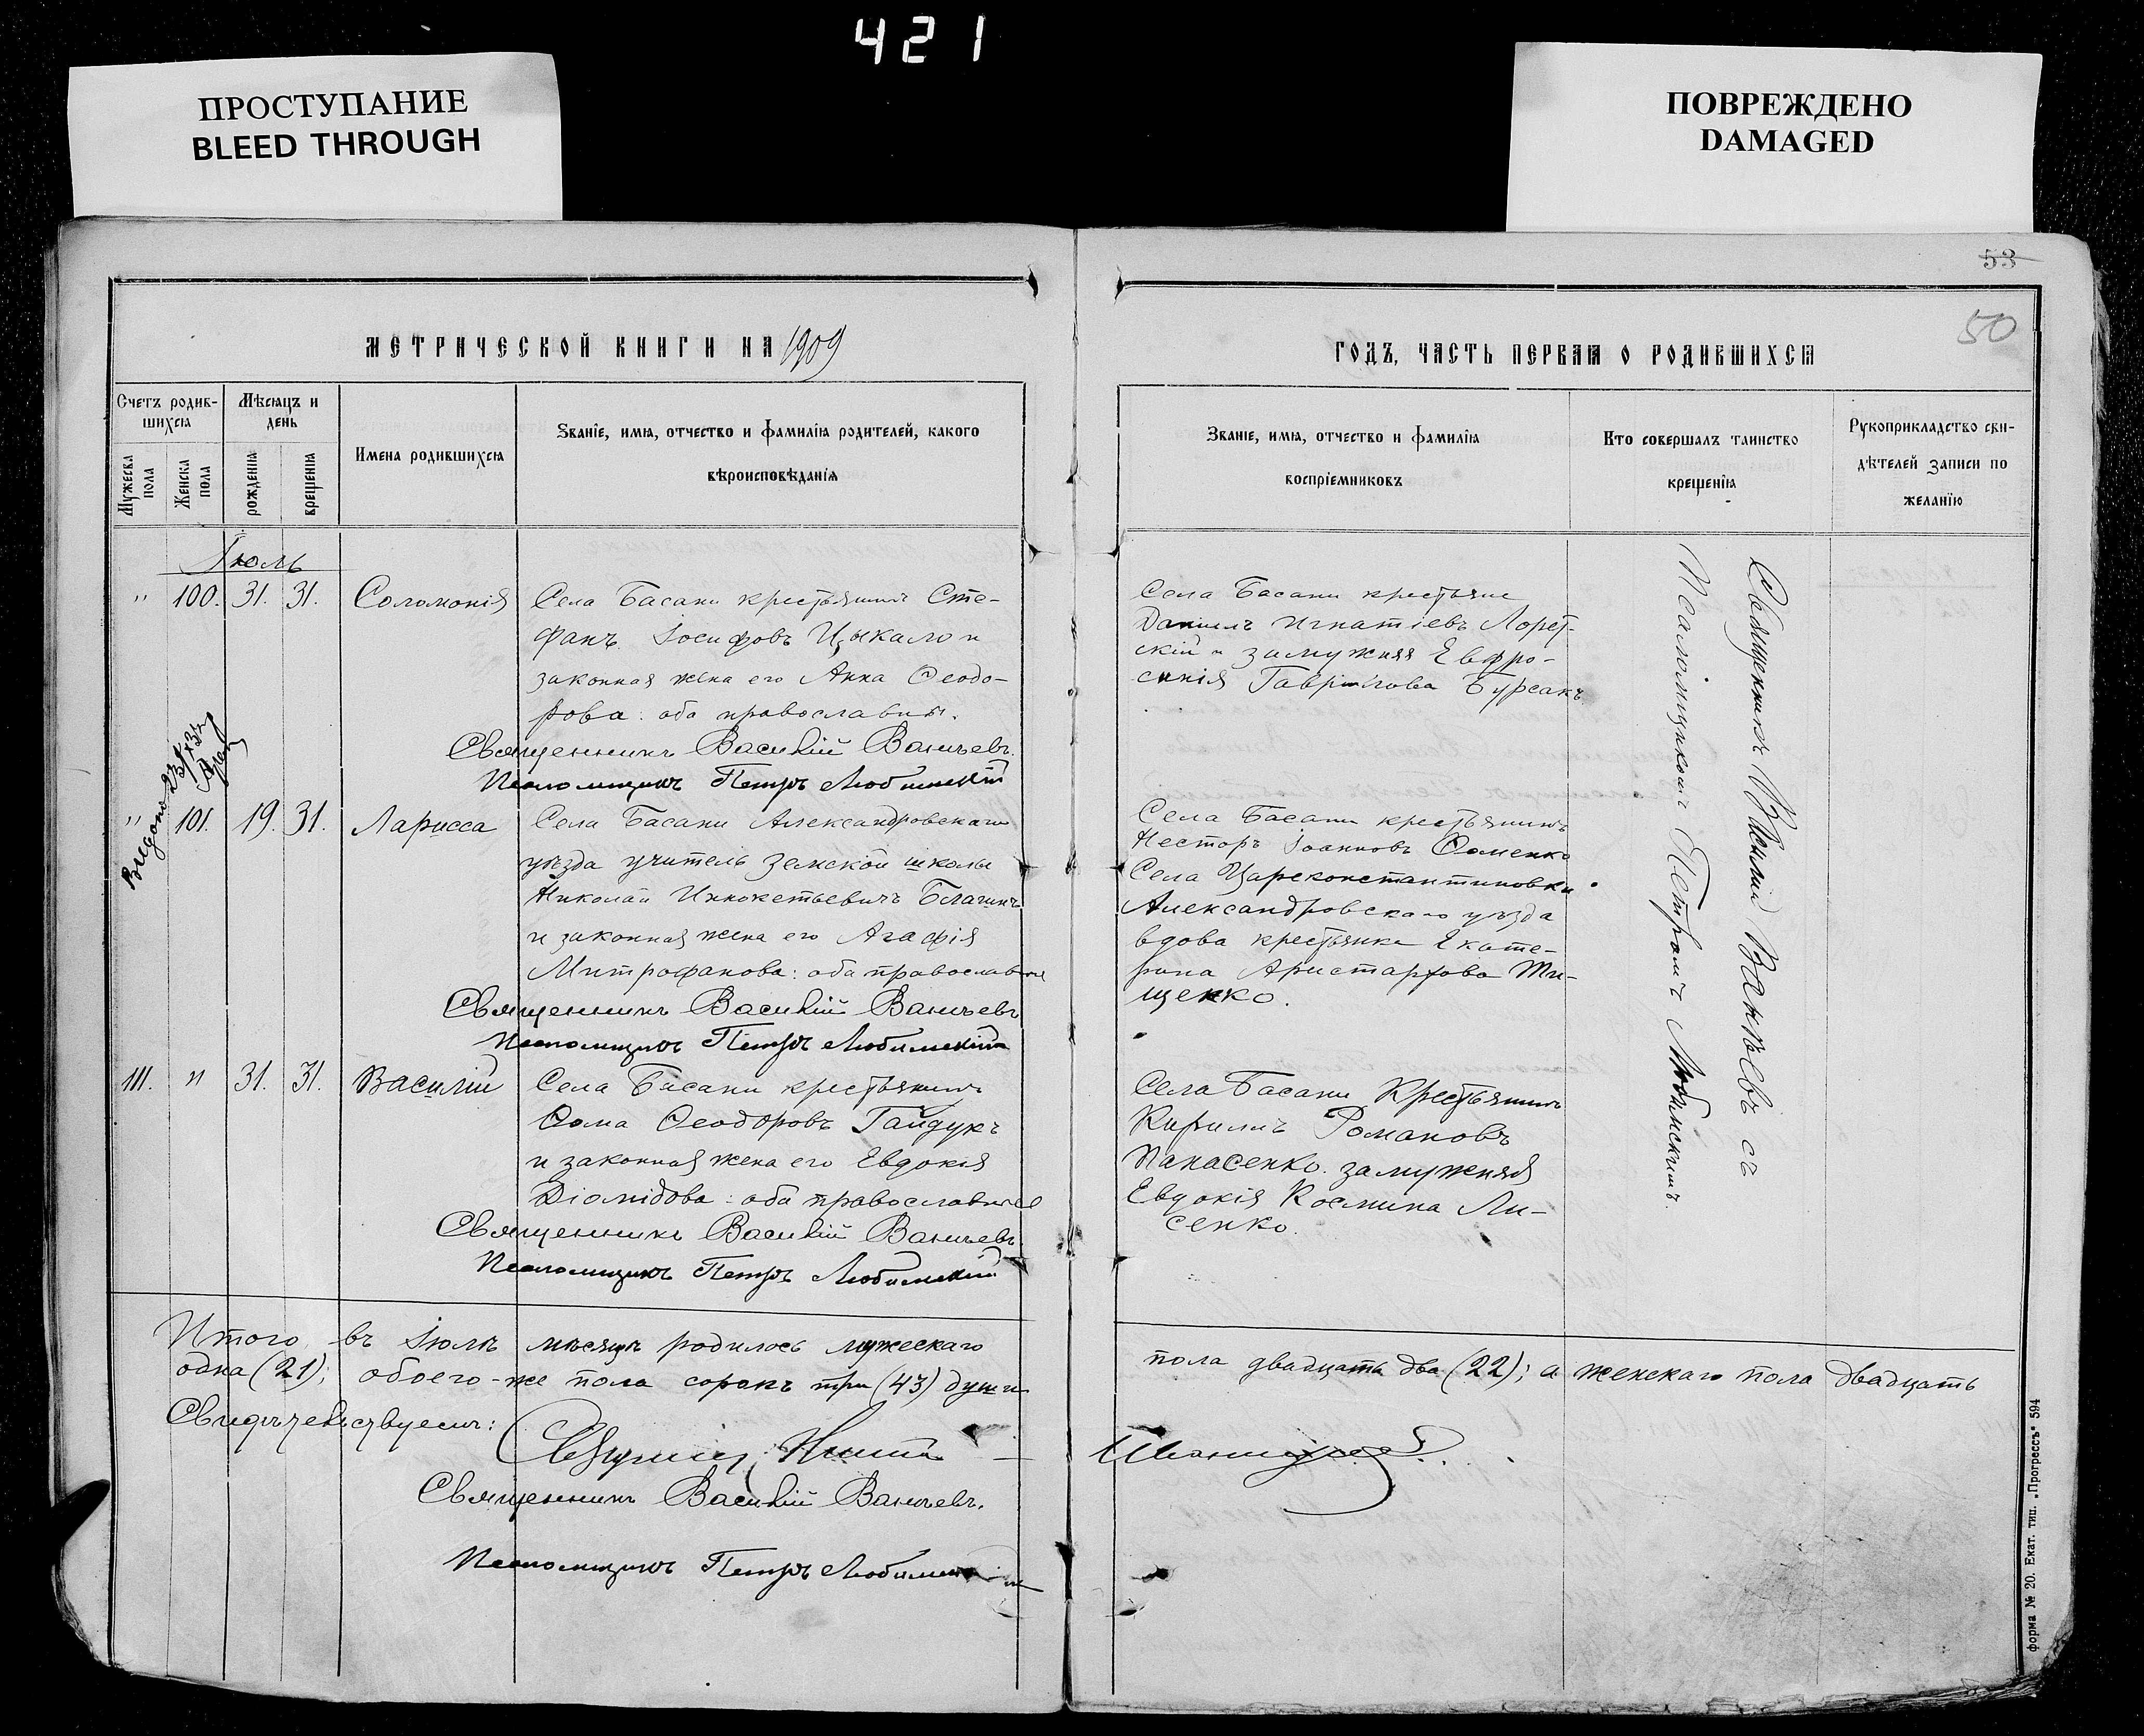 421
ПРОСТУПАНИЕ
BLEED THROUGH
ПОВРЕЖДЕНО
DAMAGED
МЕТРИЧЕСКОЙ КНИГИ НА 1909
Счетъ родив-
шихся
Мѣсяцъ и
день
Мужеска
пола
Женска
пола
рожденія
крещенія
Имена родившихся
Званіе, имя, отчество и фамилія родителей, какого
вѣроисповѣданія
Іюль
" 100. 31. 31. Соломонія
Села Басани крестьянинъ Сте-
фанъ Іосифовъ Цыкало и
законная жена его Анна Ѳеодо-
рова: оба православны.
Священникъ Василій Ваничевъ.
Псаломщикъ Петръ Любимскій
Выдано
" 101. 19. 31. Ларисса
Села Басани Александровскаго
уѣзда учитель земской школы
Николай Иннокетьевичъ Благинъ
и законная жена его Агафія
Митрофанова: оба православные
Священникъ Василій Ваничевъ
Псаломщикъ Петръ Любимскій
111. " 31. 31. Василій
Села Басани крестьянинъ
Ѳома Ѳеодоровъ Гайдукъ
и законная жена его Евдокія
Діомидова: оба православные
Священникъ Василій Ваничевъ.
Псаломщикъ Петръ Любимскій
Итого въ Іюлѣ мѣсяцѣ родилось мужескаго
одна (21); обоего-же пола сорокъ три (43) души
Свидѣтельствуемъ:
Священникъ Василій Ваничевъ.
Псаломщикъ Петръ Любимскій
53
50
ГОДЪ, ЧАСТЬ ПЕРВАЯ О РОДИВШИХСЯ
Званіе, имя, отчество и фамилія
воспріемниковъ
Кто совершалъ таинство
крещенія
Рукоприкладство сви-
дѣтелей записи по
желанію
Села Басани крестьяне
Даниилъ Игнатіевъ Лорет-
скій и замужняя Евфро-
синія Гавріилова Бурсакъ
Села Басани крестьянинъ
Несторъ Іоанновъ Ѳоменко
Села Цареконстантиновки
Александровскаго уѣзда
вдова крестьянка Екате-
рина Аристархова Ти-
щенко.
Села Басани Крестьянинъ
Кириллъ Романовъ
Панасенко. замужняя
Евдокія Космина Ли-
сенко.
Священникъ Василій Ваничевъ съ
Псаломщикомъ Петромъ Любимскимъ.
пола двадцать два (22); а женскаго пола двадцать
форма № 20. Екат. тип. „Прогрессъ" 594